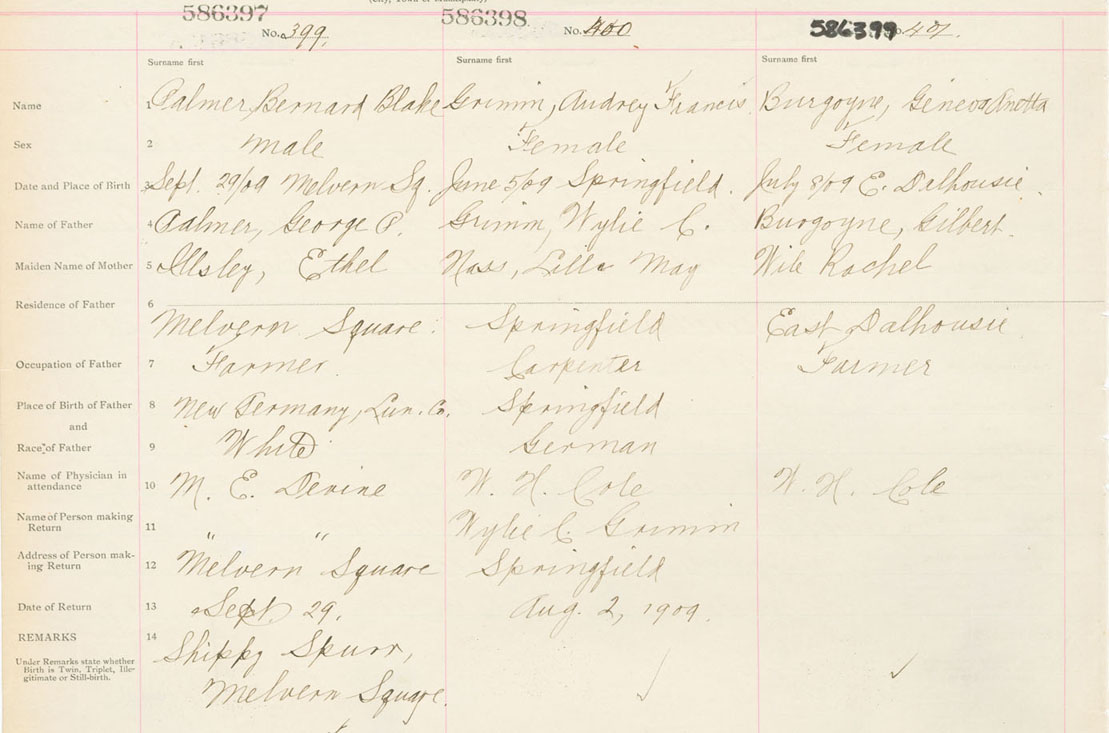 (City, Town or Municipality)
586397 586398 586399
No. 399. No. 400 No. 401.
Surname first Surname first Surname first
Name 1 Palmer, Bernard Blake Grimm, Audrey Francis Burgoyne, Geneva Anetta
Sex 2 Male Female Female
Date and Place of Birth 3 Sept. 29/09 Melvern Sq. June 5/09 Springfield. July 8/09 E. Dalhousie.
Name of Father 4 Palmer, George P. Grimm, Wylie C. Burgoyne, Gilbert.
Maiden Name of Mother 5 Illsley, Ethel Nass, Lilla May Wile Rachel
Residence of Father 6 Melvern Square. Springfield East Dalhousie
Occupation of Father 7 Farmer. Carpenter Farmer
Place of Birth of Father 8 New Germany, Lun. Co. Springfield
and
Race of Father 9 White German
Name of Physician in
attendance 10 M. E. Devine W. H. Cole W. H. Cole
Name of Person making
Return 11 " " Wylie C. Grimm
Address of Person mak-
ing Return 12 Melvern Square Springfield
Date of Return 13 Sept 29. Aug. 2, 1909.
REMARKS 14 Shippy Spurr,
Under Remarks state whether
Birth is Twin, Triplet, Ille-
gitimate or Still-birth.
Melvern Square.